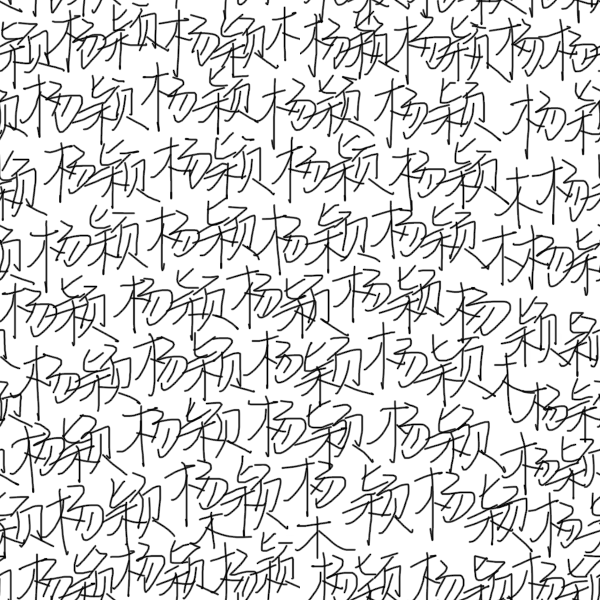 颖杨颖杨颖木杨颖杨颖杨杨
杨颖杨颖杨颖杨颖杨颖
颖杨颖杨颖杨颖杨颖木杨
杨颖杨颖杨颖杨颖木杨颖
杨颖杨颖杨颖杨颖杨颖颖
杨颖杨颖杨颖杨颖木杨颖
杨颖杨颖杨颖杨颖杨颖
颖杨颖杨颖杨颖杨颖杨
木木
杨颖杨颖杨颖杨颖杨颖杨